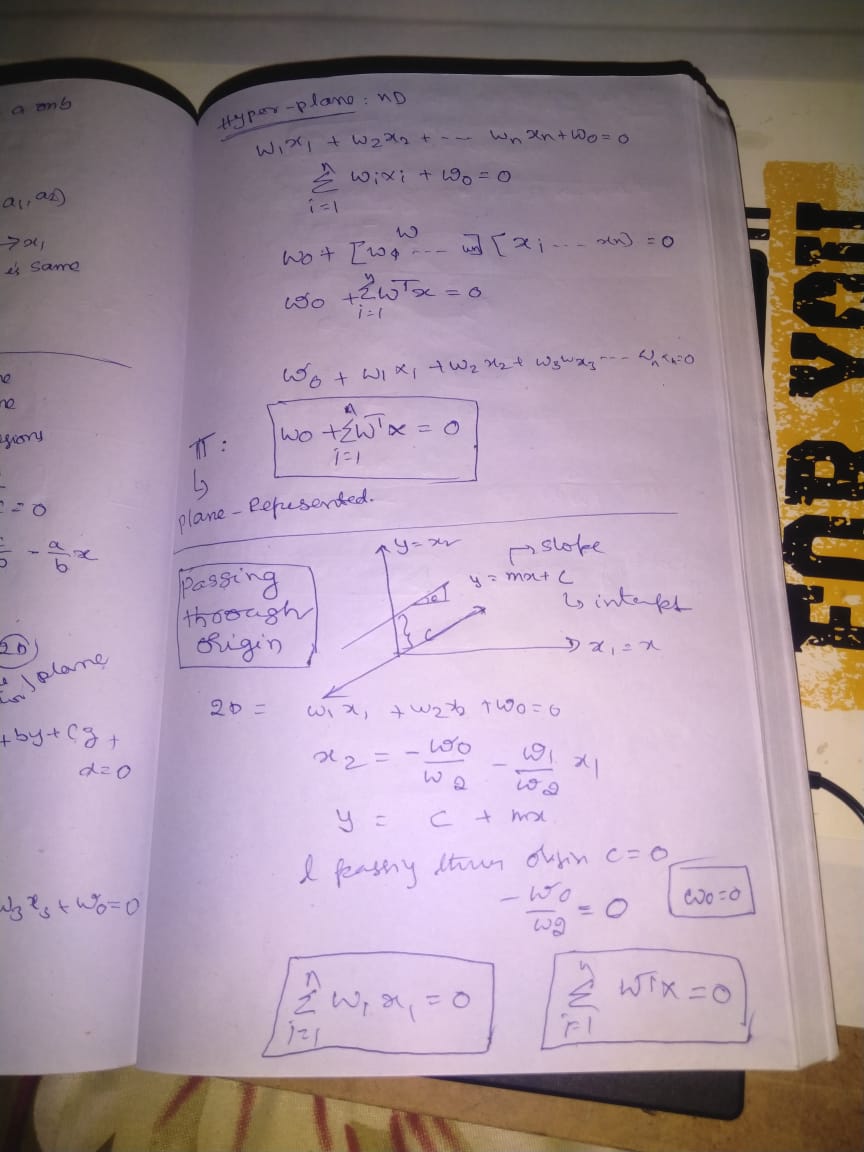 a only
a1, a2)
→ x1
is same
ne
ne
gions
= 0
- a/b x
2D
plane
+ by + Cz +
d = 0
w3 x3 + w0 = 0
Hyper-plane : nD
w1x1 + w2x2 + --- wn xn + w0 = 0
n Σ i=1 wixi + w0 = 0
w
w0 + [w1 --- wn] [xi --- xn) = 0
w0 + n Σ i=1 wTx = 0
w0 + w1x1 + w2x2 + w3wx3 --- wnxn=0
π : w0 + n Σ i=1 wTx = 0
↳
plane - Repusented.
Passing
through
origin
y = x2
→ slope
y = mx + c
↳ intercept
θ
c
x1 = x
2D = w1x1 + w2x2 + w0 = 0
x2 = - w0/w2 - w1/w2 x1
y = c + mx
l passing origin c = 0
- w0/w2 = 0
w0 = 0
n Σ i=1 wi xi = 0
n Σ i=1 wTx = 0
FOR YOU